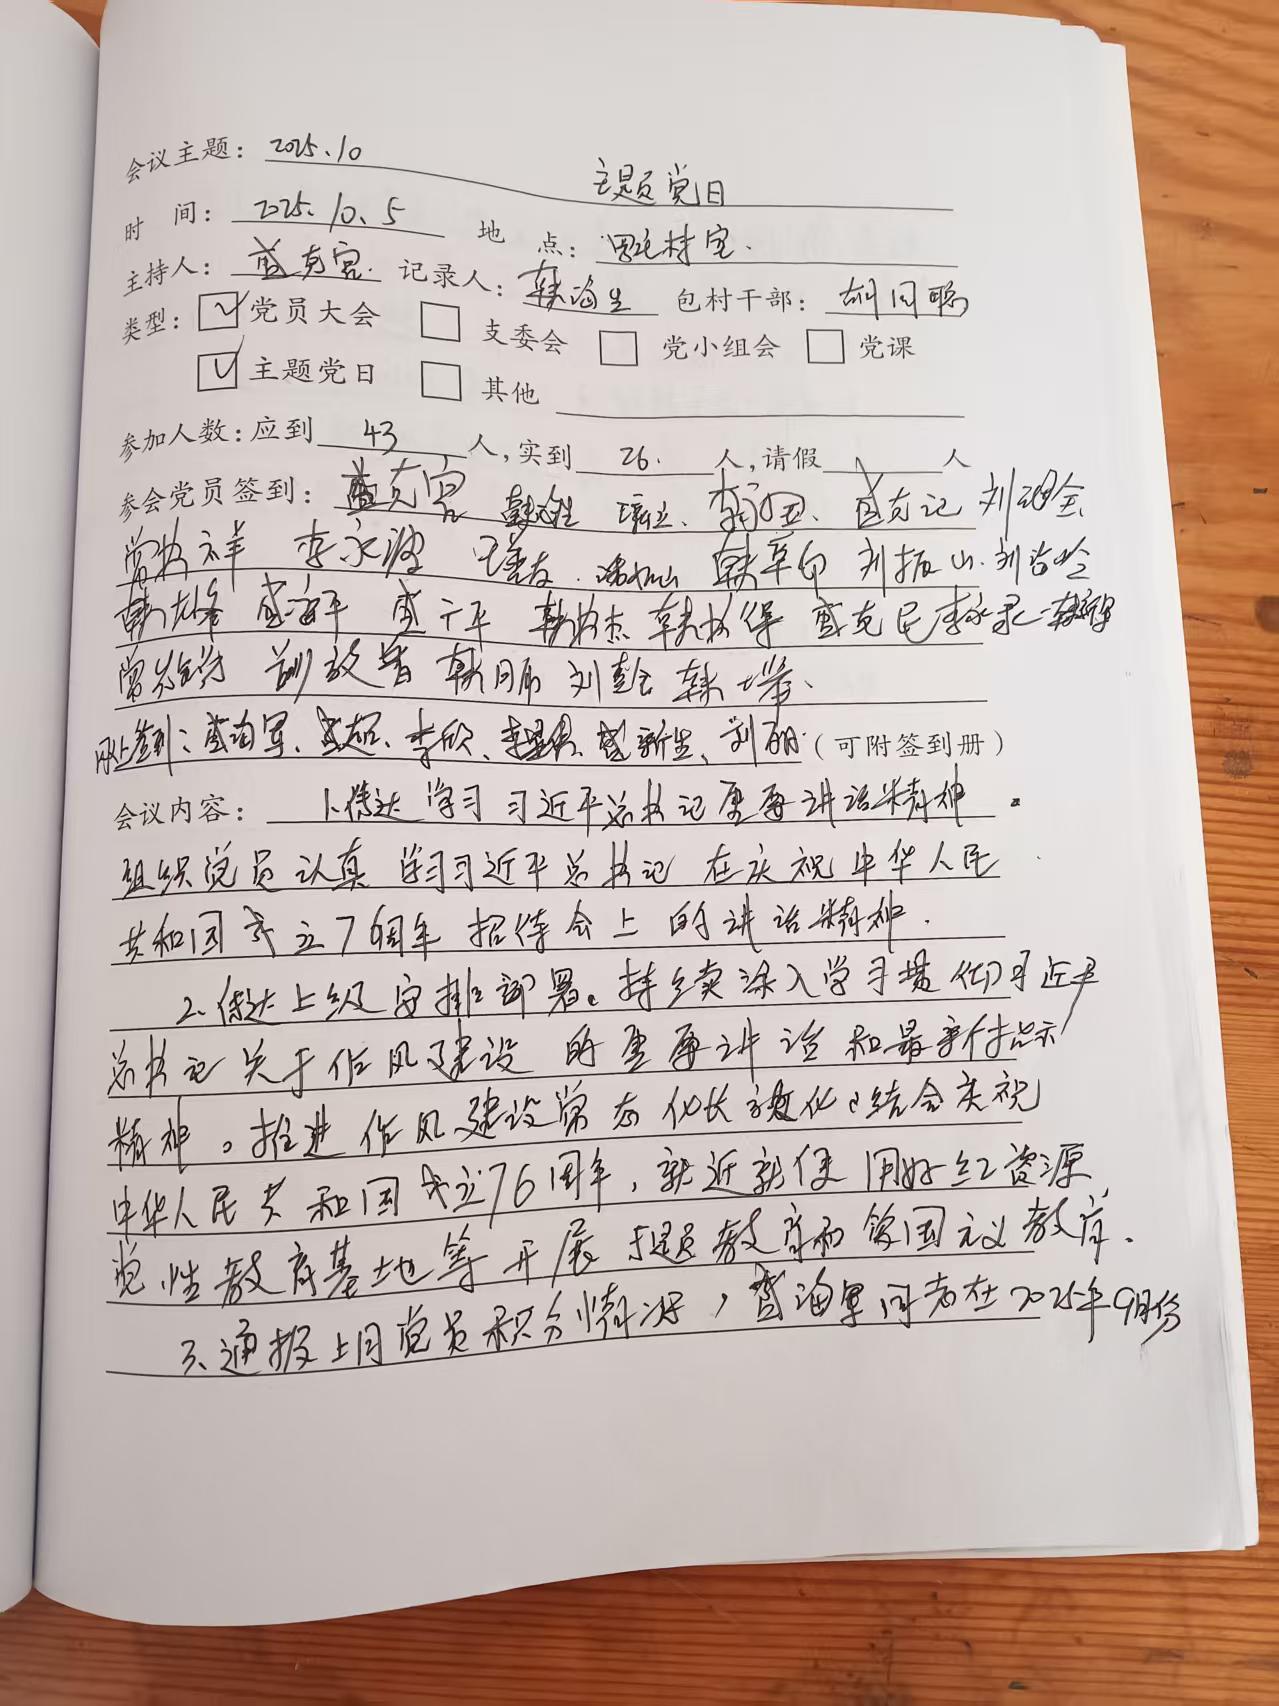 会议主题：2025.10 主题党日
时 间：2025.10.5 地 点：村室.
主持人：盛克宫. 记录人：韩海生 包村干部：胡同聪
类型：☑党员大会 □支委会 □党小组会 □党课
☑主题党日 □其他
参加人数：应到 43 人，实到 26. 人，请假 人
参会党员签到：盛克宫 盛克记
李永波 韩章印 刘振山.
盛海平 盛广平 韩松杰 盛克民 李永录
刘彭会
网上签到：盛海军、盛超、李欣、盛新生、刘丽.（可附签到册）
会议内容：1、传达学习习近平总书记重要讲话精神。
组织党员认真学习习近平总书记在庆祝中华人民
共和国成立76周年招待会上的讲话精神.
2、传达上级安排部署。持续深入学习贯彻习近平
总书记关于作风建设的重要讲话和最新指示
精神。推进作风建设常态化长效化。结合庆祝
中华人民共和国成立76周年，就近就便用好红资源
党性教育基地等开展党员教育和爱国主义教育.
3、通报上月党员积分情况，盛海军同志在2025年9月份